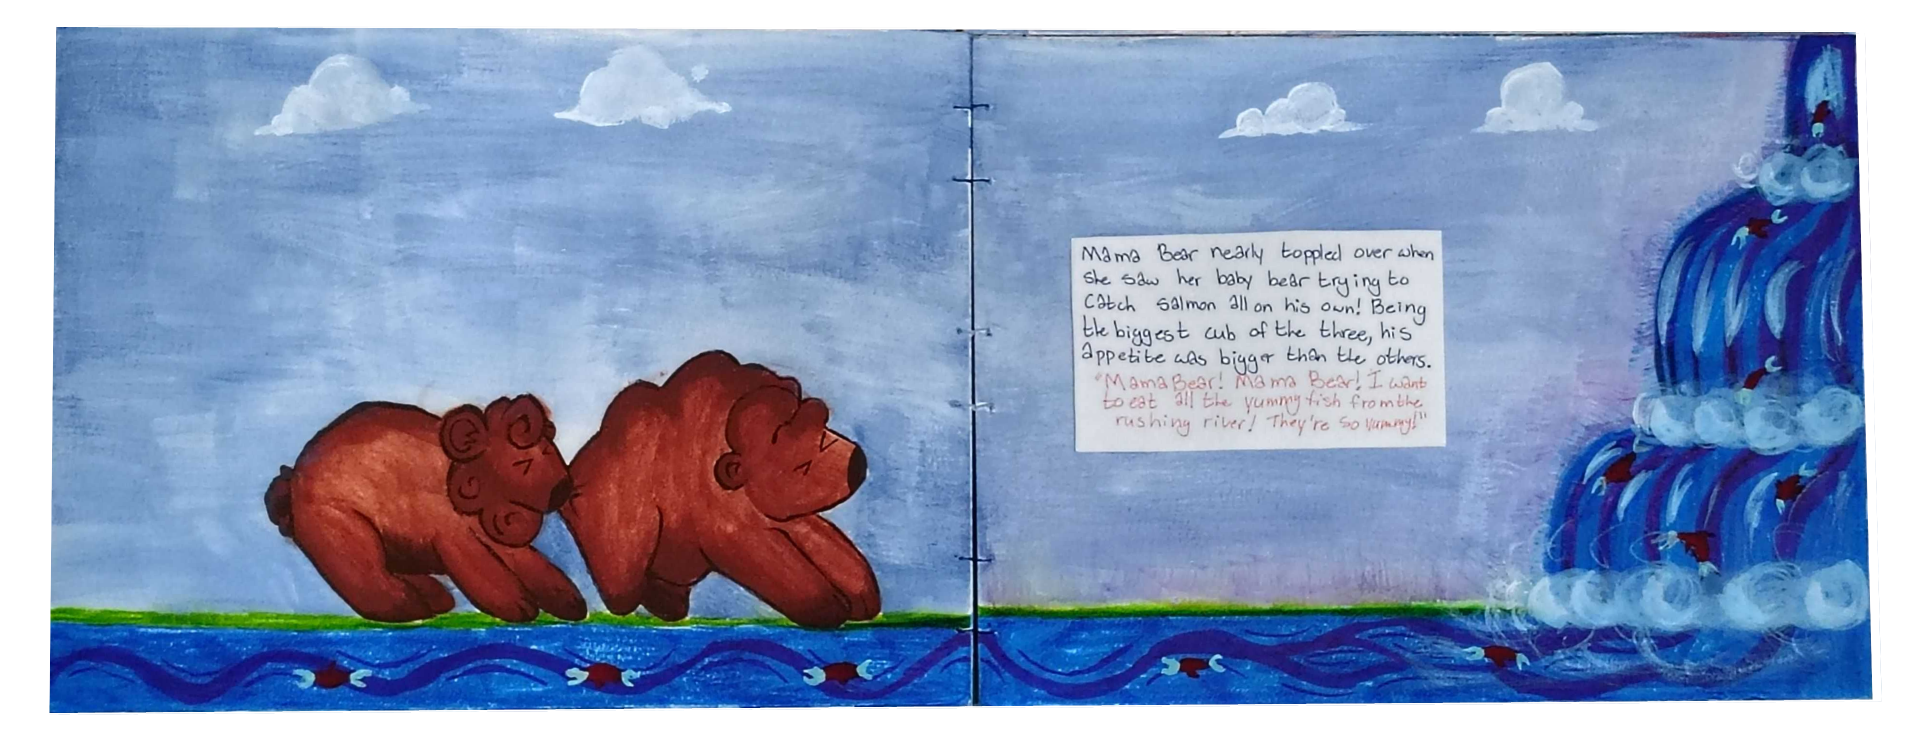 Mama Bear nearly toppled over when
she saw her baby bear trying to
catch salmon all on his own! Being
the biggest cub of the three, his
appetite was bigger than the others.
"Mama Bear! Mama Bear! I want
to eat all the yummy fish from the
rushing river! They're so yummy!"